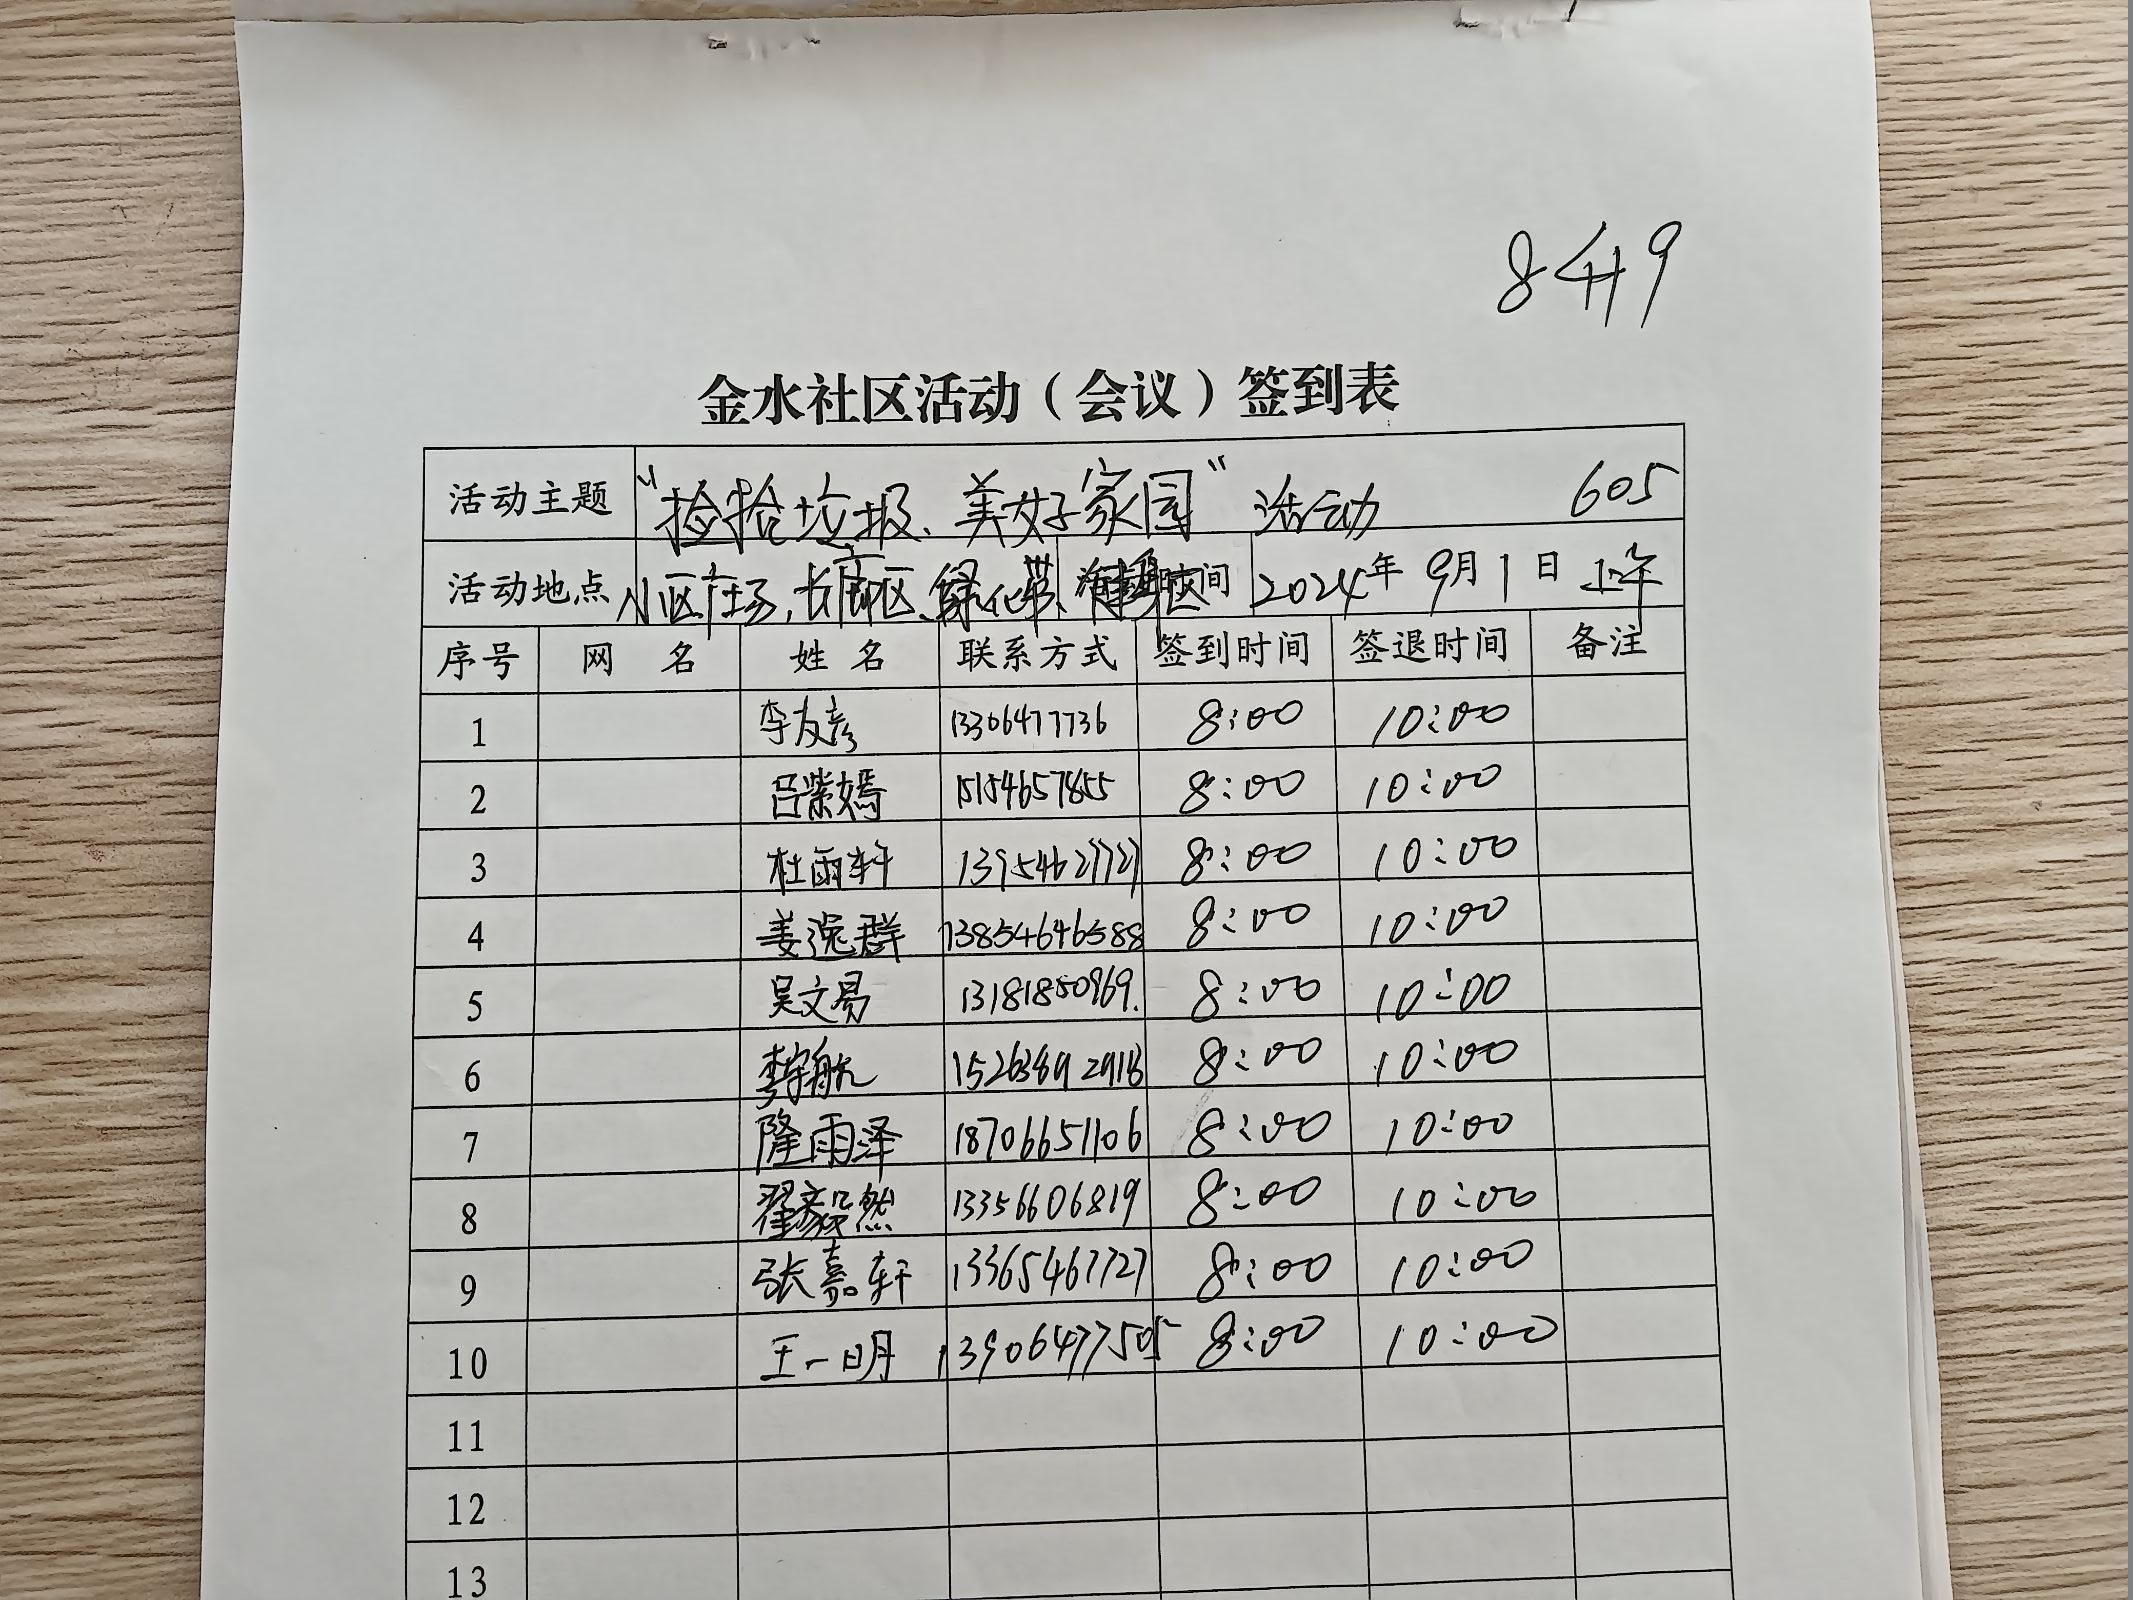 8419
金水社区活动（会议）签到表
活动主题 “捡拾垃圾、美好家园” 活动 605
活动地点 小区广场,长廊区、绿化带、健身区 2024年 9月 1日 上午
序号 网 名 姓 名 联系方式 签到时间 签退时间 备注
1 李友彦 13306477736 8:00 10:00
2 吕紫嫣 15154657855 8:00 10:00
3 杜雨轩 13954627727 8:00 10:00
4 姜逸群 13854646588 8:00 10:00
5 吴文易 13181850969. 8:00 10:00
6 李宇航 15263892918 8:00 10:00
7 隆雨泽 18706651106 8:00 10:00
8 翟毅然 13356606819 8:00 10:00
9 张嘉轩 13365467727 8:00 10:00
10 王一明 13906477505 8:00 10:00
11
12
13